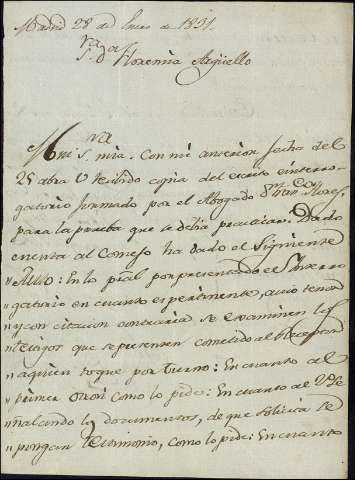 Madrid 28 de Enero de 1831.
S.ra D.a Florencia Argüello
Mui S.ra mia. Con mi anterior fecha del
25 abra V recibido copia del escrito e interro-
gatorio formado por el Abogado
para la prueba que se debia Dado
cuenta al Consejo ha dado el siguiente
Auto: En lo pral por presentado el Interro
"gatorio en cuanto es pertinente, a su tenor
"y con citacion contraria se examinen los
"testigos que se presenten cometido al Receptor
"a quien toque por turno: En cuanto al
"primer Otrosi como lo pide: En cuanto al 2º se
"ñalando los documentos, de que solicita se
"pongan testimonio, como lo pide: En cuanto